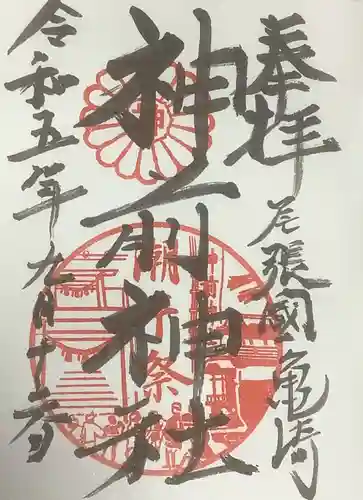 奉拝
尾張國亀崎
神前神社
潮干祭
令和五年九月十六日